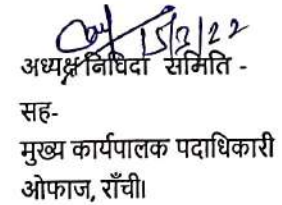 15/3/22
अध्यक्ष निविदा समिति -
सह-
मुख्य कार्यपालक पदाधिकारी
ओफाज, राँची।